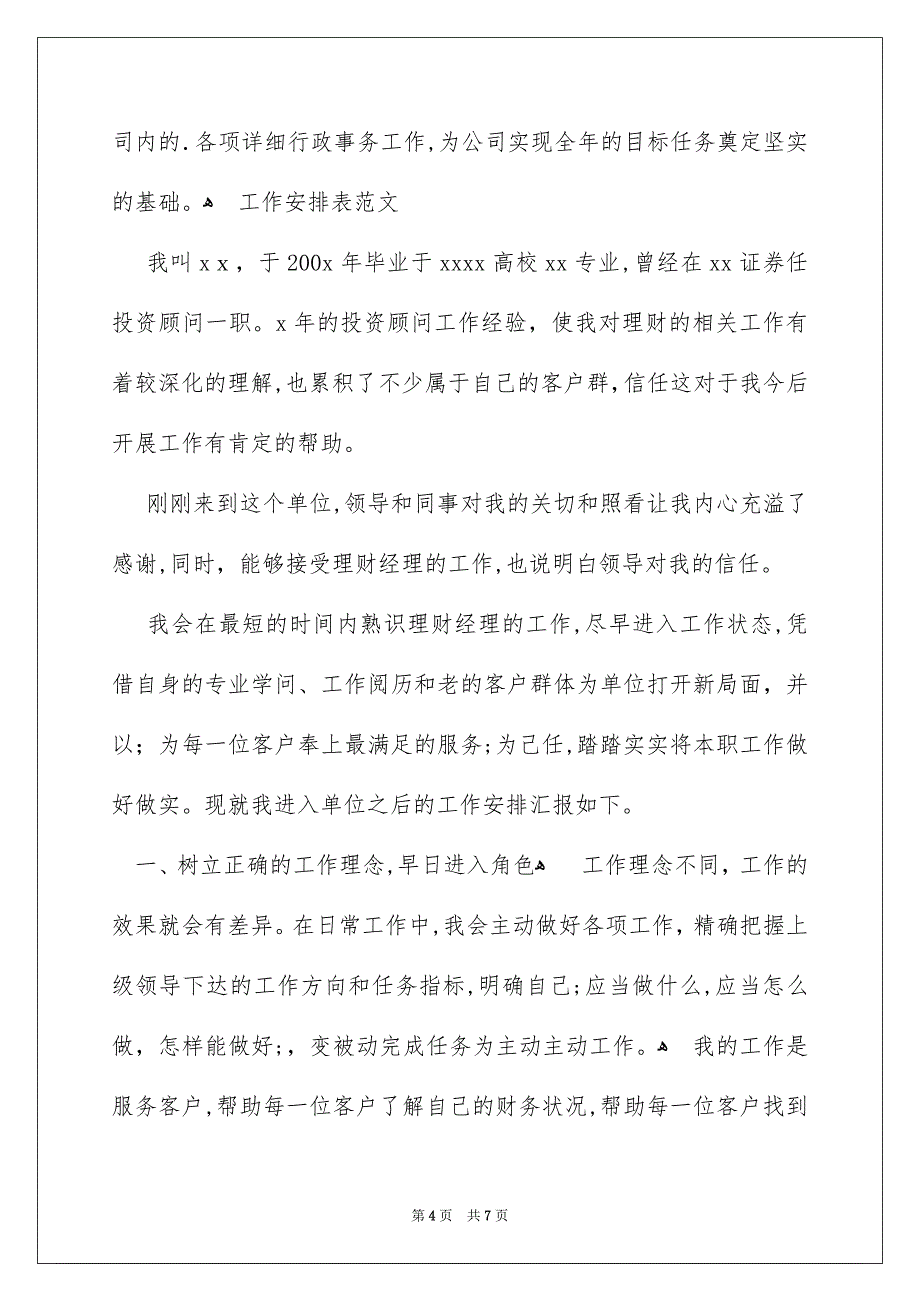 司内的.各项详细行政事务工作,为公司实现全年的目标任务奠定坚实
的基础。ﻫ 工作安排表范文
我叫xx，于200x年毕业于xxxx高校xx专业,曾经在xx证券任
投资顾问一职。x年的投资顾问工作经验，使我对理财的相关工作有
着较深化的理解,也累积了不少属于自己的客户群，信任这对于我今后
开展工作有肯定的帮助。
刚刚来到这个单位,领导和同事对我的关切和照看让我内心充溢了
感谢,同时，能够接受理财经理的工作,也说明白领导对我的信任。
我会在最短的时间内熟识理财经理的工作,尽早进入工作状态,凭
借自身的专业学问、工作阅历和老的客户群体为单位打开新局面，并
以；为每一位客户奉上最满足的服务;为己任,踏踏实实将本职工作做
好做实。现就我进入单位之后的工作安排汇报如下。
一、树立正确的工作理念,早日进入角色ﻫ 工作理念不同，工作的
效果就会有差异。在日常工作中,我会主动做好各项工作，精确把握上
级领导下达的工作方向和任务指标,明确自己;应当做什么,应当怎么
做，怎样能做好;，变被动完成任务为主动主动工作。ﻫ 我的工作是
服务客户,帮助每一位客户了解自己的财务状况,帮助每一位客户找到
第4页 共7页